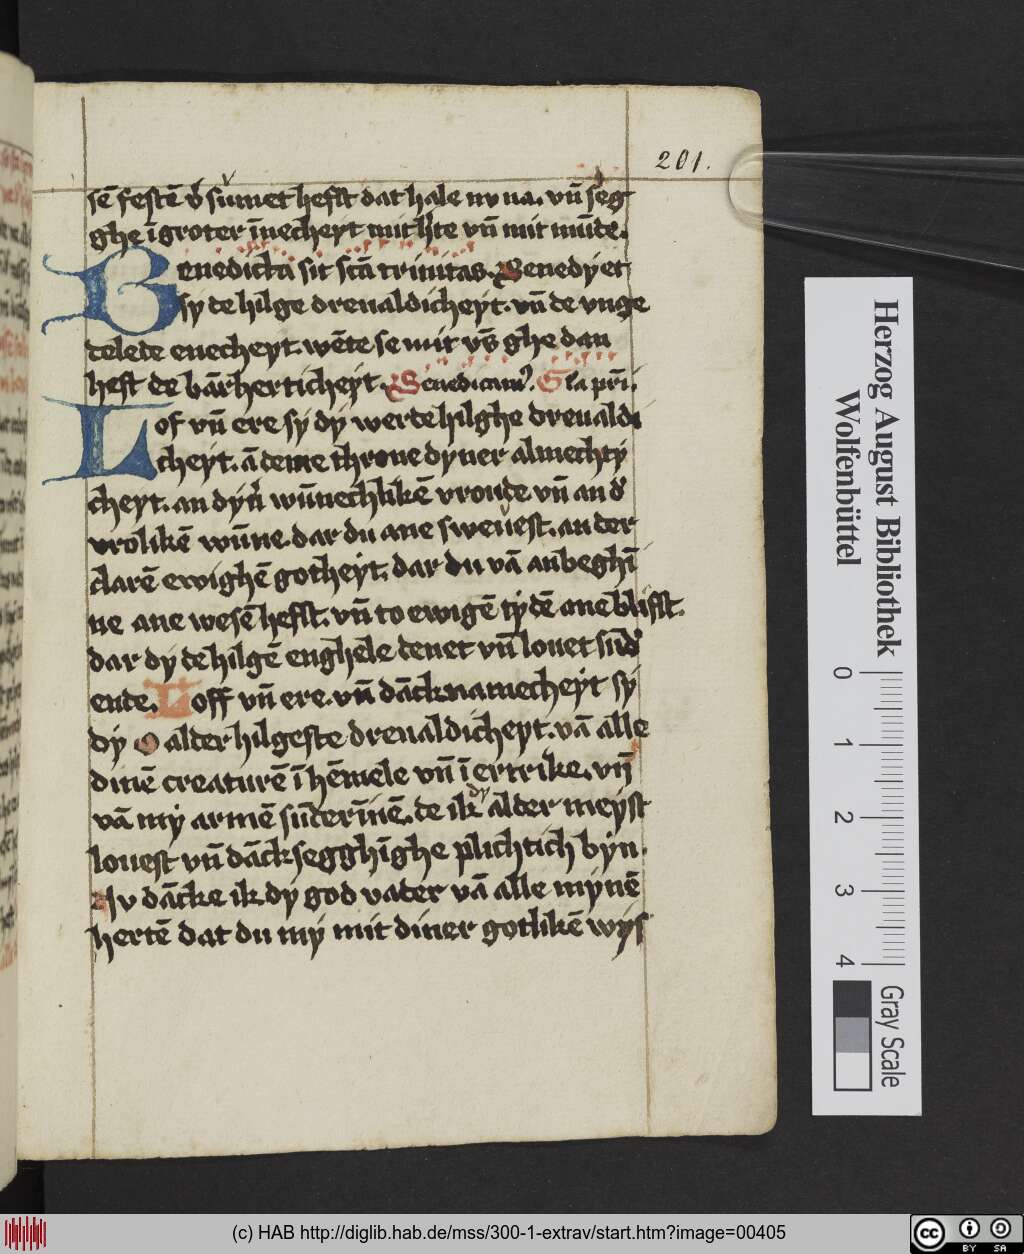 201.
sē festē v̄ sūmet hefft dat hale nv na. vn̄ seg
ghe ī groter īnecheyt mit h̓te vn̄ mit mūde.
Benedicta sit sctā trinitas. Benedyet
sy de hilge dreualdicheyt. vn̄ de vnge
delede enecheyt. wēte se mit vs̄ ghe dan
heft de bārherticheyt. Benedicamꝰ. Gl̄a pr̄i.
Lof vn̄ ere sy dy werde hilghe dreualdi
cheyt. ā deme throne dyner almechty
cheyt. an dyn̄ wūnechlikē vroude vn̄ an d̓
vrolikē wūne. dar du ane sweuest. an der
clarē ewighē gotheyt. dar du vā anbeghī
ne ane wesē hefft. vn̄ to ewigē tydē ane blifst.
dar dy de hilgē enghele denet vn̄ louet sūd̓
ende. Loff vn̄ ere. vn̄ dācknamecheyt sy
dy o alder hilgeste dreualdicheyt. vā alle
dinē creaturē ī hēmele vn̄ ī ertrike. vn̄
vā my armē sūderīnē. de ik dy alder meyst
louest vn̄ dācksegghīghe plichtich byn.
Nv dācke ik dy god vader vā alle mynē
hertē dat du my mit diner gotlikē wys
Herzog August Bibliothek
Wolfenbüttel
0 1 2 3 4
Gray Scale
(c) HAB http://diglib.hab.de/mss/300-1-extrav/start.htm?image=00405
cc BY SA